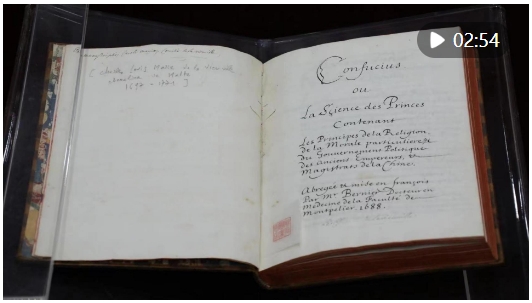 02:54
1697 - 1721 ]
Confucius
ou
La Science des Princes
Contenant
Les Principes de la Religion
de la Morale particuliere,
du Gouvernement Politique
des anciens Empereurs, et
Magistrats de la Chine.
Abregée et mise en françois
Par Mr. Bernier Docteur en
Medecine de la Faculté de
Montpelier, 1688.